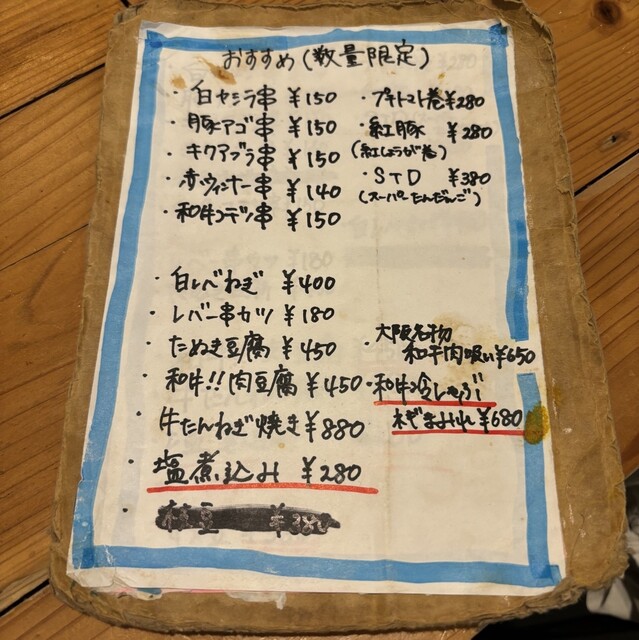 おすすめ(数量限定)
・白センラ串 ¥150
・豚アゴ串 ¥150
・キクアブラ串 ¥150
・赤ウィンナー串 ¥140
・和牛コテツ串 ¥150
・プチトマト巻 ¥280
・紅豚 ¥280
(紅しょうが巻)
・STD ¥380
(スーパーたんだんご)
・白レバねぎ ¥400
・レバー串カツ ¥180
・たぬき豆腐 ¥450
・和牛!!肉豆腐 ¥450
・牛たんねぎ焼き ¥880
・塩煮込み ¥280
・枝豆 ¥380
・大阪名物
和牛肉吸い ¥650
・和牛冷しゃぶ
ネギまみれ ¥680